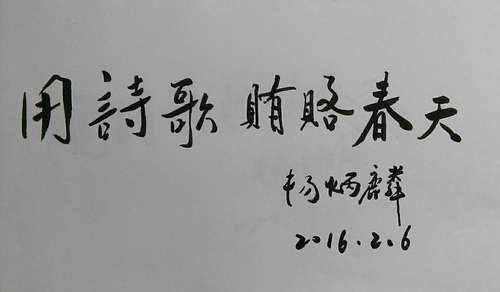 用詩歌 賄賂春天
杨炳麟
2016.2.6